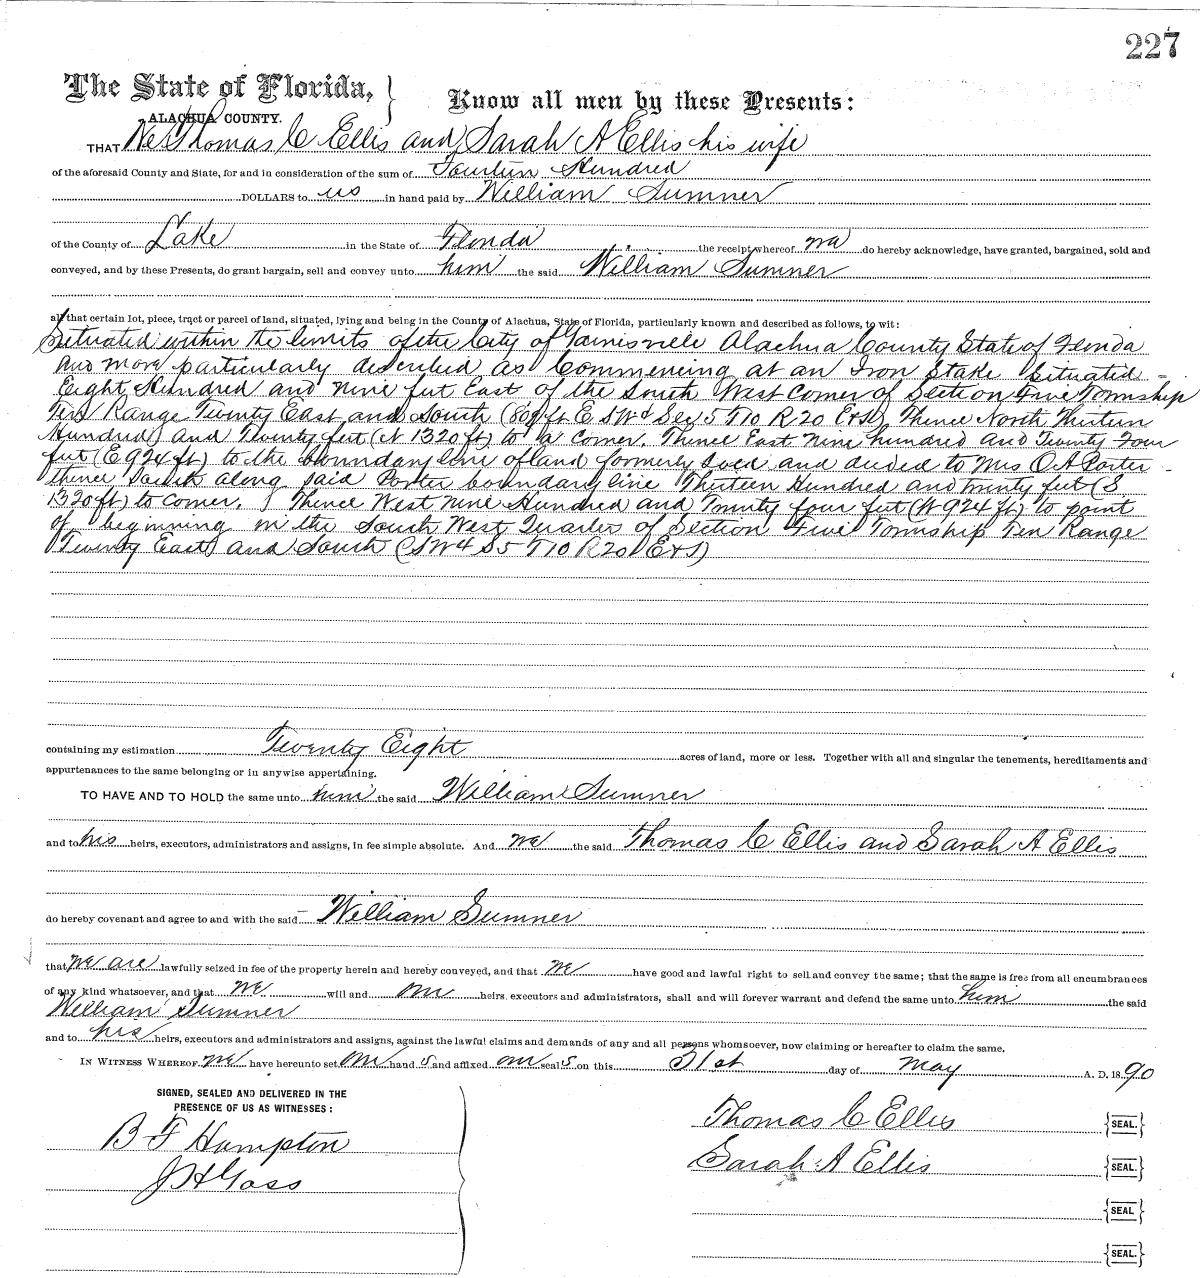 227
The State of Florida, }
ALACHUA COUNTY.
Know all men by these Presents:
THAT We Thomas C Ellis and Sarah A Ellis his wife
of the aforesaid County and State, for and in consideration of the sum of Fourteen Hundred
DOLLARS to us in hand paid by William Sumner
of the County of Lake in the State of Florida the receipt whereof we do hereby acknowledge, have granted, bargained, sold and
conveyed, and by these Presents, do grant bargain, sell and convey unto him the said William Sumner
all that certain lot, piece, tract or parcel of land, situated, lying and being in the County of Alachua, State of Florida, particularly known and described as follows, to wit:
Situated within the limits of the City of Gainesville Alachua County State of Florida
and more particularly described as Commencing at an Iron Stake Situated
Eight Hundred and nine feet East of the South West Corner of Section Five Township
Ten Range Twenty East and South (809 ft E SW Sec 5 T10 R20 E&S) Thence North Thirteen
Hundred and Twenty feet (N 1320 ft) to a Corner. Thence East nine hundred and Twenty Four
feet (E 924 ft) to the boundary line of land formerly sold and deeded to Mrs O A Porter
thence South along said Porter boundary line Thirteen Hundred and twenty feet (S
1320 ft) to Corner. Thence West nine Hundred and Twenty four feet (W 924 ft) to point
of beginning in the South West Quarter of Section Five Township Ten Range
Twenty East and South (SW4 S5 T10 R20 E&S)
containing my estimation Twenty Eight acres of land, more or less. Together with all and singular the tenements, hereditaments and
appurtenances to the same belonging or in anywise appertaining.
TO HAVE AND TO HOLD the same unto him the said William Sumner
and to his heirs, executors, administrators and assigns, in fee simple absolute. And we the said Thomas C Ellis and Sarah A Ellis
do hereby covenant and agree to and with the said William Sumner
that we are lawfully seized in fee of the property herein and hereby conveyed, and that we have good and lawful right to sell and convey the same; that the same is free from all encumbrances
of any kind whatsoever, and that we will and our heirs, executors and administrators, shall and will forever warrant and defend the same unto him the said
William Sumner
and to his heirs, executors and administrators and assigns, against the lawful claims and demands of any and all persons whomsoever, now claiming or hereafter to claim the same.
IN WITNESS WHEREOF, we have hereunto set our hand s and affixed our seal s on this 31st day of May A. D. 1890
SIGNED, SEALED AND DELIVERED IN THE
PRESENCE OF US AS WITNESSES:
B F Hampton
J H Goss
Thomas C Ellis {SEAL.}
Sarah A Ellis {SEAL.}
{SEAL}
{SEAL.}